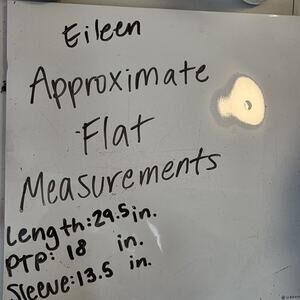 Eileen
Approximate
Flat
Measurements
Length: 29.5 in.
PTP: 18 in.
Sleeve: 13.5 in.